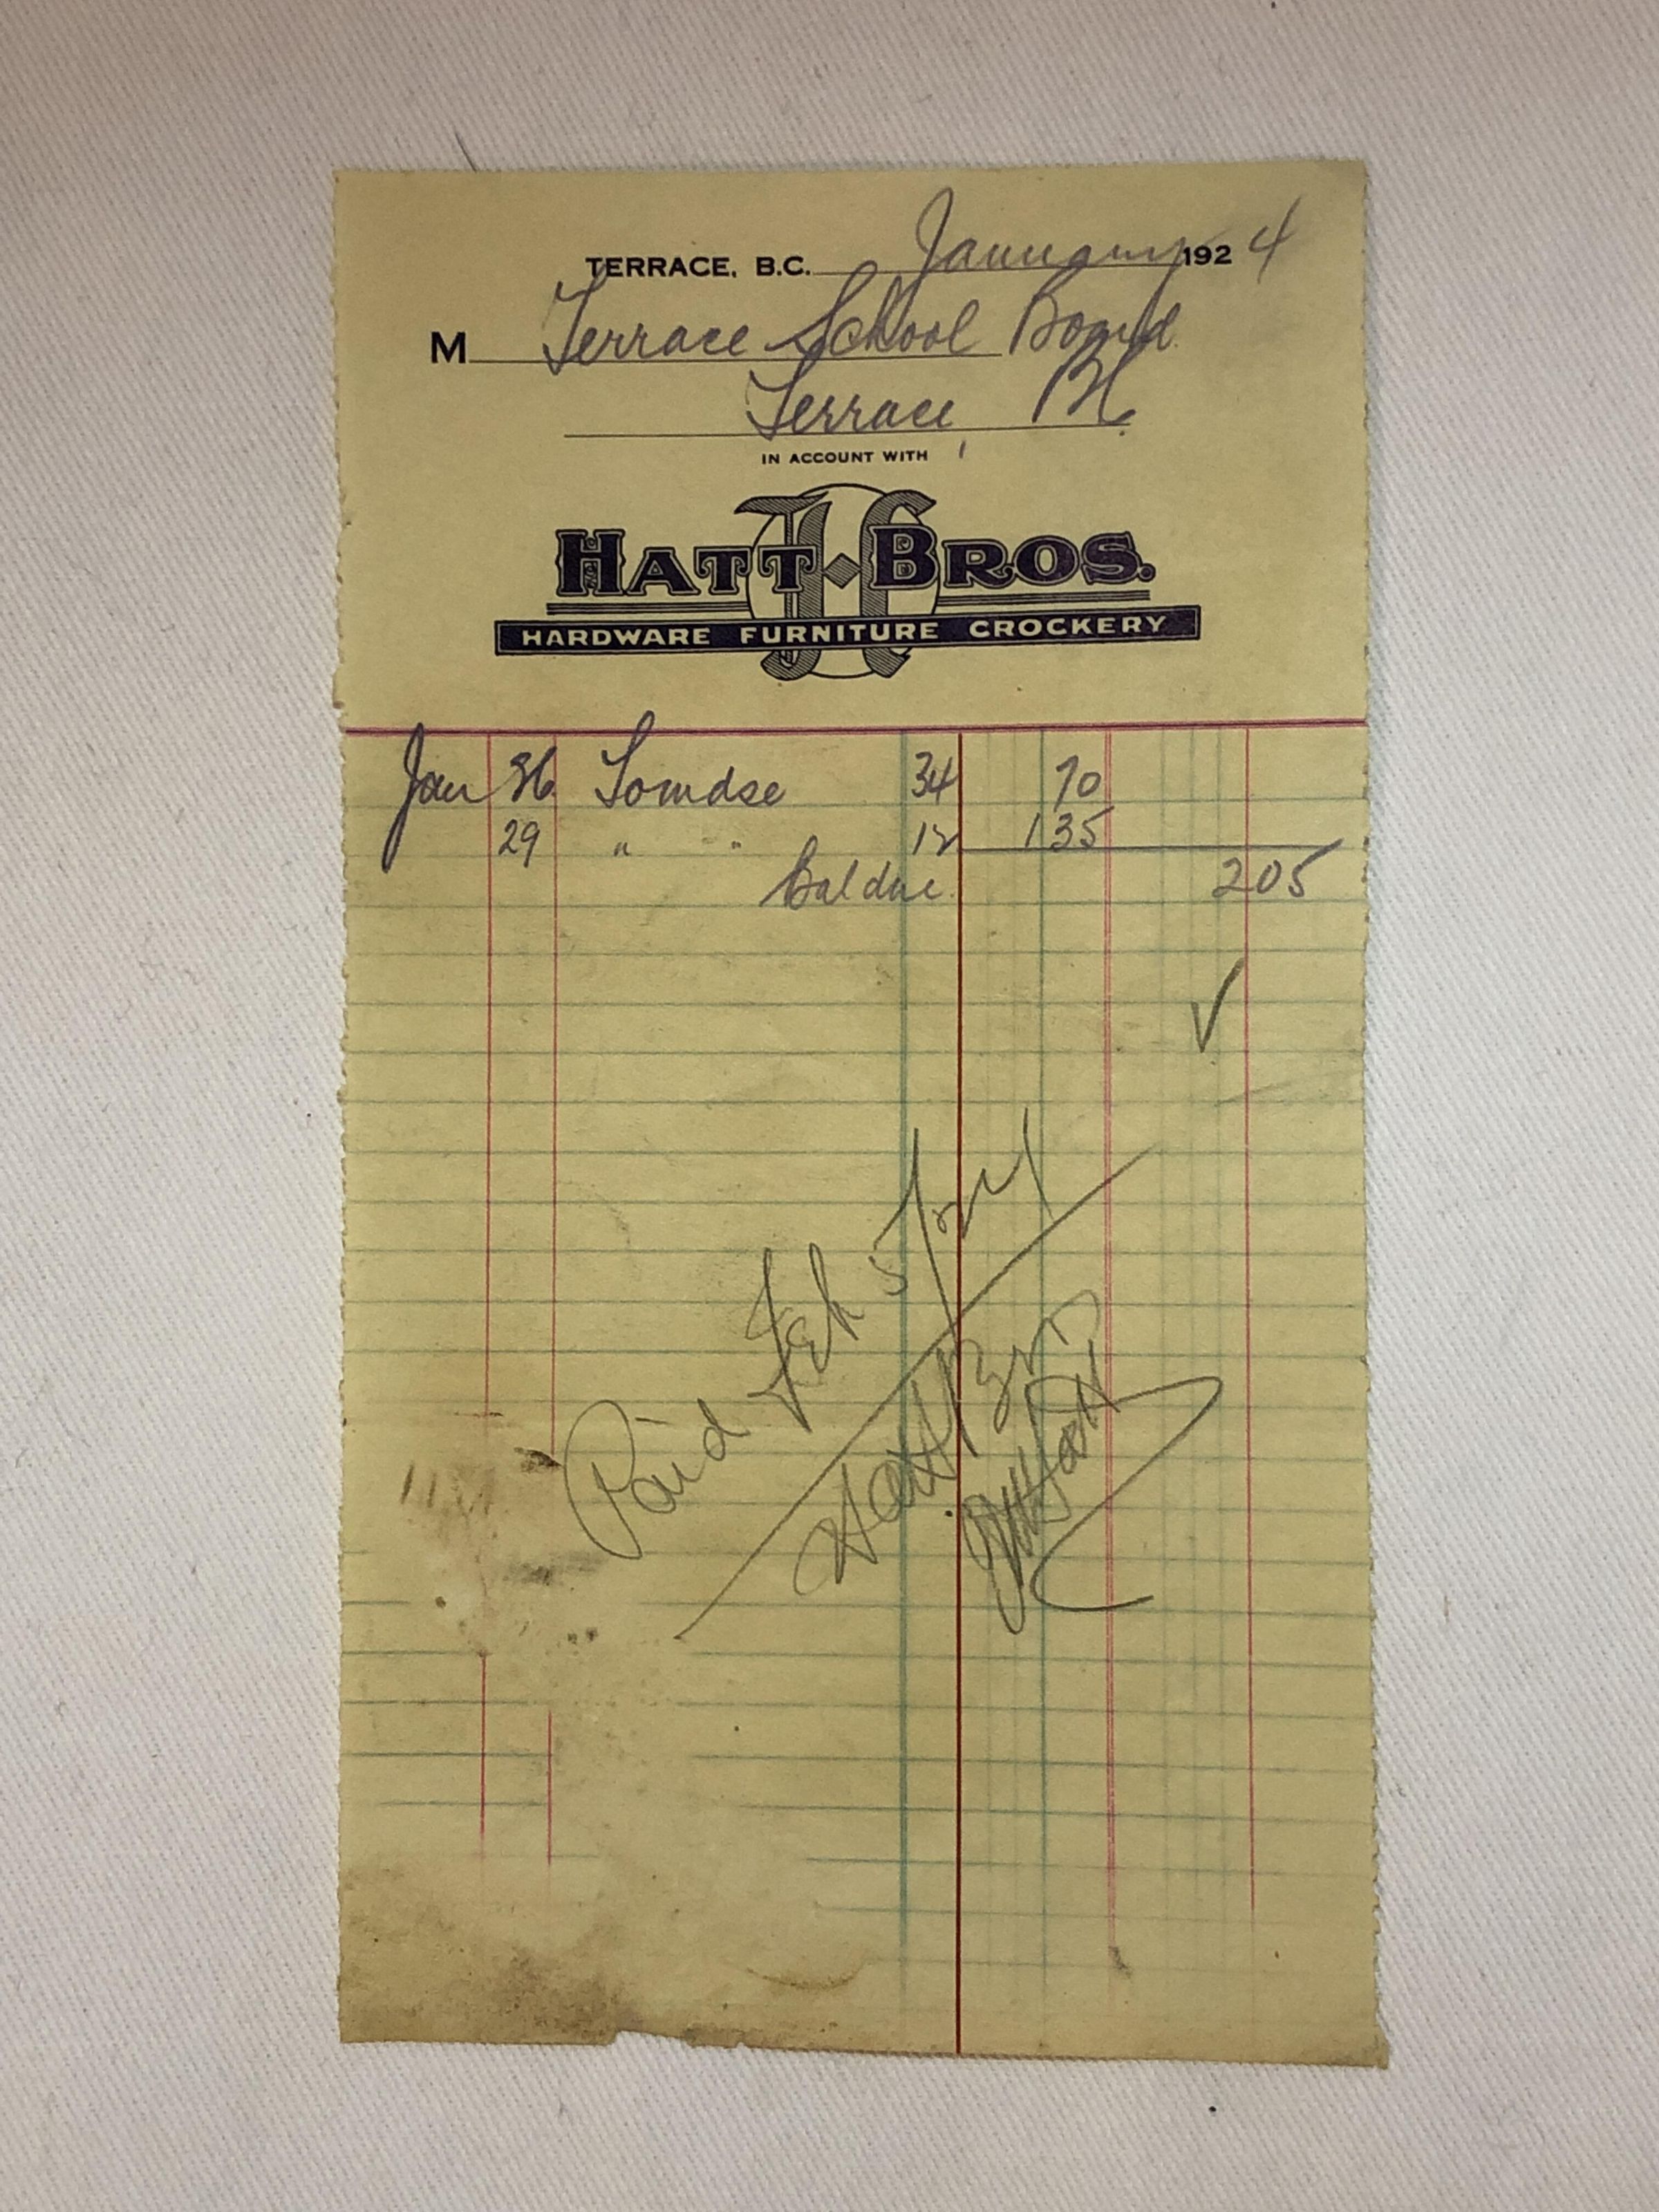 TERRACE, B.C. January 1924
M Terrace School Board
Terrace, BC.
IN ACCOUNT WITH
HATT BROS.
HARDWARE FURNITURE CROCKERY
Jan 26 To mdse 34 70
29 " " 12 135
Bal due 205
✓
Paid Feb 5/24
Hatt Bros
Hatt